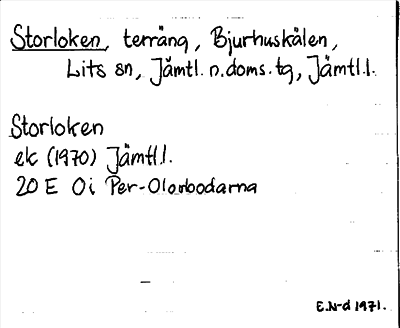 Storloken, terräng, Bjurhuskälen,
Lits sn, Jämtl. n. doms. tg, Jämtl. l.
Storloken
ek (1970) Jämtl. l.
20 E 0i Per-Olovbodarna
E.N-d 1971.